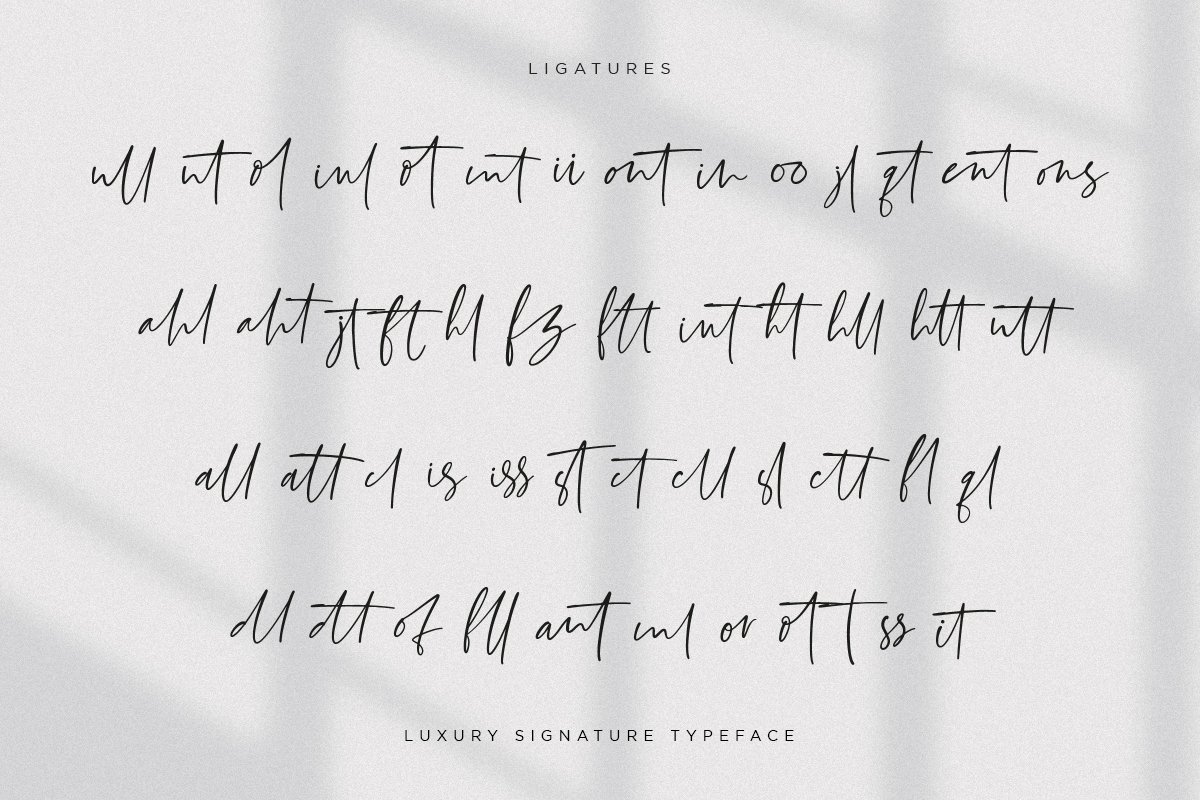 LIGATURES
ull unt ol inl ot unt ii ont in oo jl qt ent ons
ahl aht jt ft hl fz ftt int ht hll htt utt
all att cl is iss st ct cll sl ctt fl ql
dl dtt of fll ant unl or ott ss it
LUXURY SIGNATURE TYPEFACE